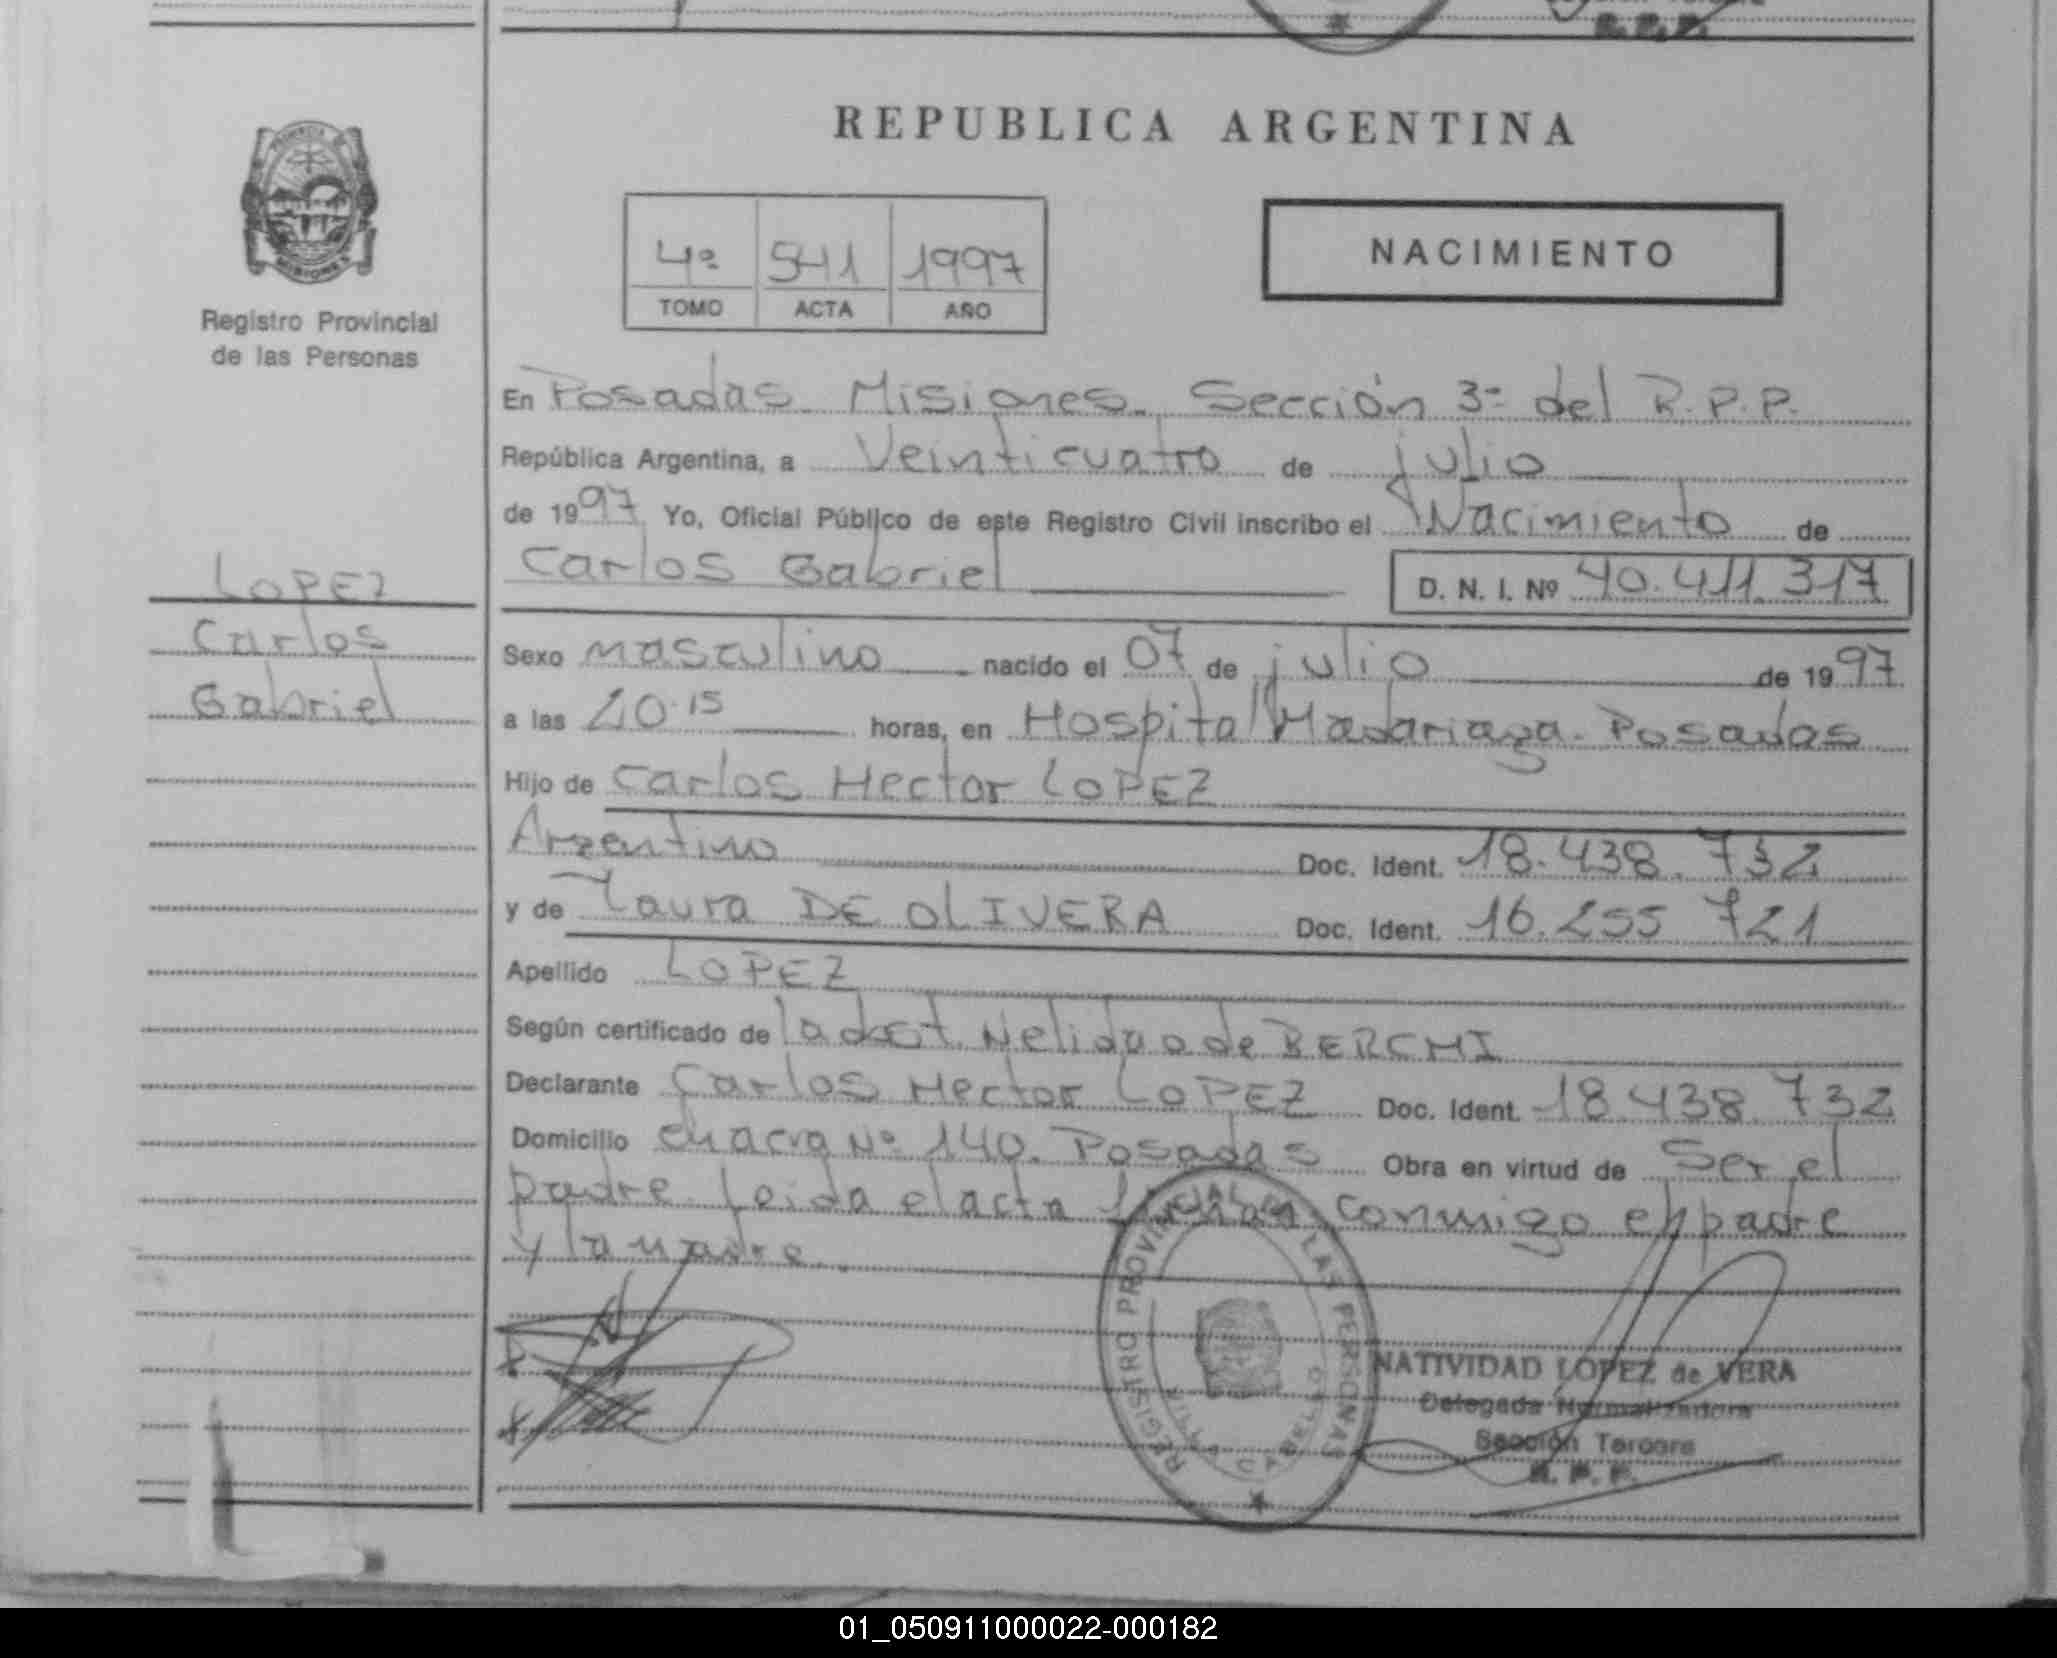 REPUBLICA ARGENTINA
PROVINCIA DE
MISIONES
Registro Provincial
de las Personas
4º 541 1997
TOMO ACTA AÑO
NACIMIENTO
En Posadas Misiones. Sección 3ª del R.P.P.
República Argentina, a Veinticuatro de julio
de 1997 Yo, Oficial Público de este Registro Civil inscribo el Nacimiento de
Carlos Gabriel D. N. I. Nº 40.411.317
LOPEZ
Carlos
Gabriel
Sexo masculino nacido el 07 de julio de 1997
a las 20.15 horas, en Hospital Madariaga. Posadas
Hijo de Carlos Hector LOPEZ
Argentino Doc. Ident. 18.438.732
y de Laura DE OLIVERA Doc. Ident. 16.255 721
Apellido LOPEZ
Según certificado de la doct. Nelida de BERCHI
Declarante Carlos Hector LOPEZ Doc. Ident. 18.438.732
Domicilio Chacra Nº 140. Posadas Obra en virtud de Ser el
padre leida el acta firman conmigo el padre
y la madre.
REGISTRO PROVINCIAL DE LAS PERSONAS
VILLA CABELLO
NATIVIDAD LOPEZ de VERA
Delegada Normalizadora
Sección Tercera
R. P. P.
01_050911000022-000182